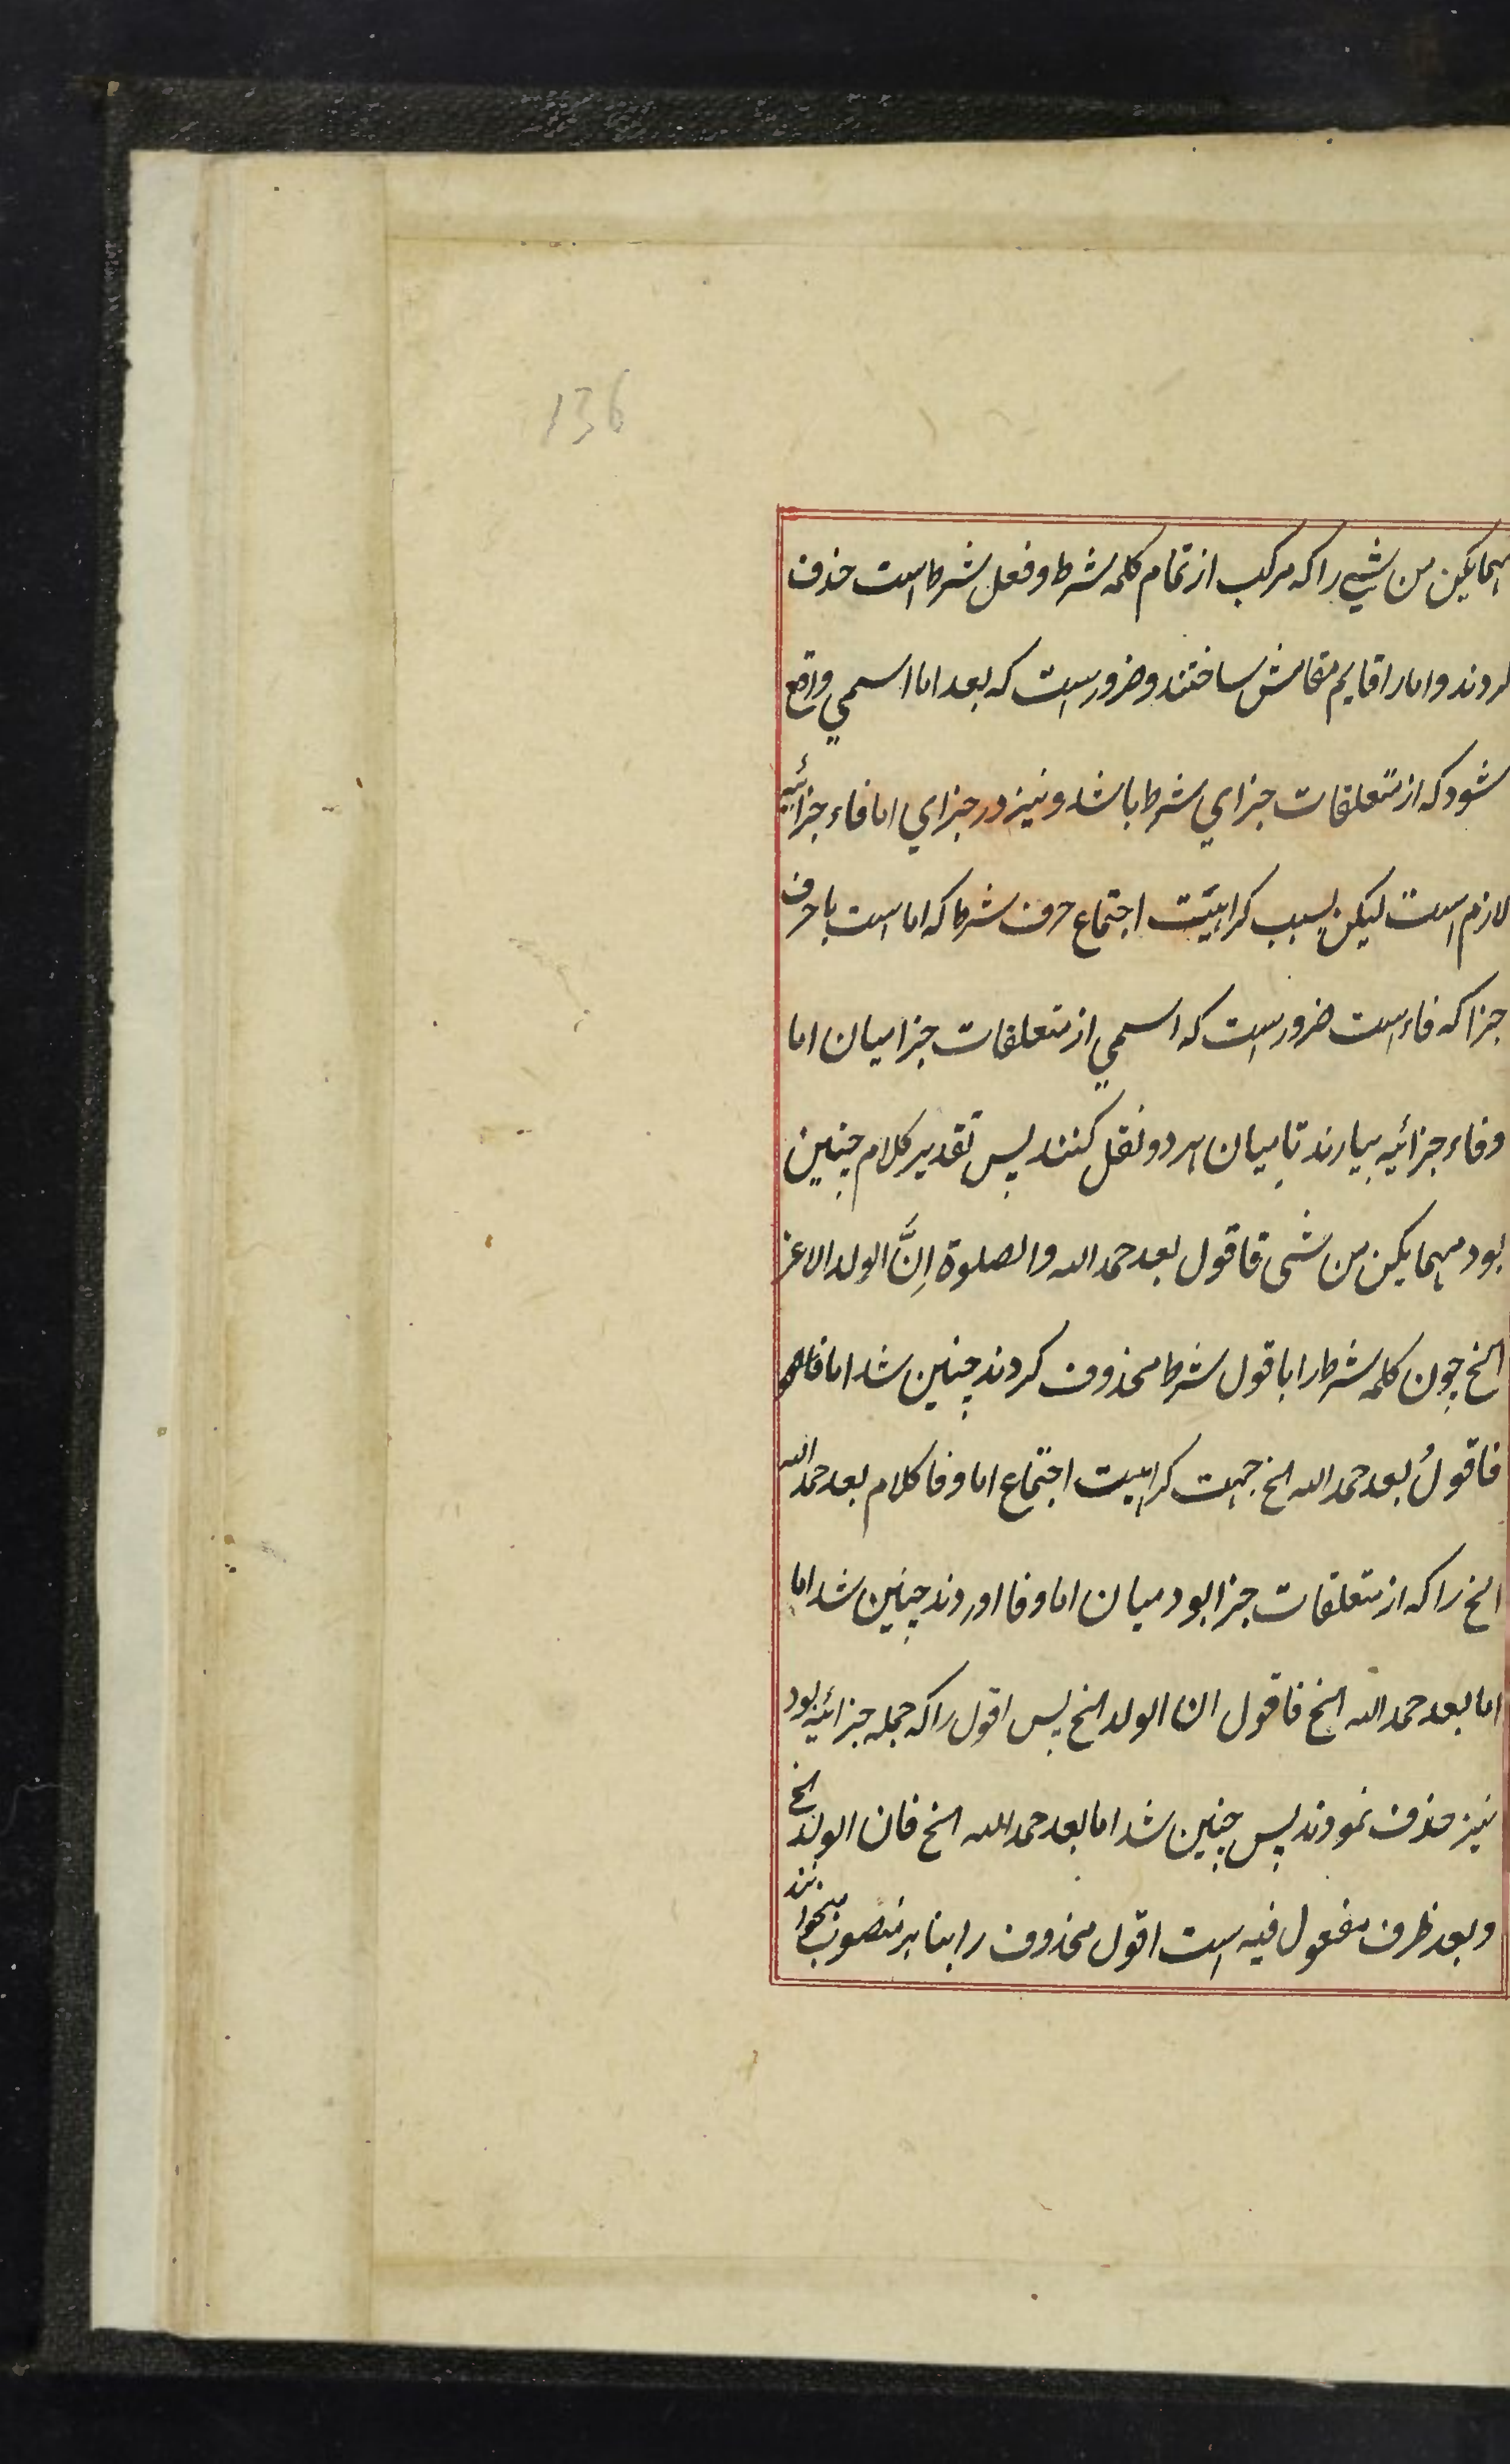 136
مهما یکن من شیٔی را که مرکب از تمام کلمه شرط و فعل شرط است حذف
کردند و اما را قایم مقامش ساختند و ضرورست که بعد اما اسمی واقع
شود که از متعلقات جزای شرط باشد و نیز در جزای اما فاء جزائیه
لازم است لیکن بسبب کراهیّت اجتماع حرف شرط که اما است با حرف
جزا که فاء است ضرورست که اسمی از متعلقات جزا میان اما
و فاء جزائیه بیارند تا میان هر دو نقل کنند پس تقدیر کلام چنین
بود مهما یکن من شی فاقول بعد حمد الله والصلوة اِنَّ الولد الاعز
الخ چون کلمه شرط را با قول شرط محذوف کردند چنین شد اما
فاقولُ بعد حمد الله الخ جهت کراهیت اجتماع اما و فا کلام بعد حمد الله
الخ را که از متعلقات جزا بود میان اما و فا اوردند چنین شد اما
اما بعد حمد الله الخ فاقول ان الولد الخ پس اقول را که جمله جزائیه بود
نیز حذف نمودند پس چنین شد اما بعد حمد الله الخ فان الولد الخ
و بعد ظرف مفعول فیه است اقول محذوف را بنا بر منصوب میخوانند